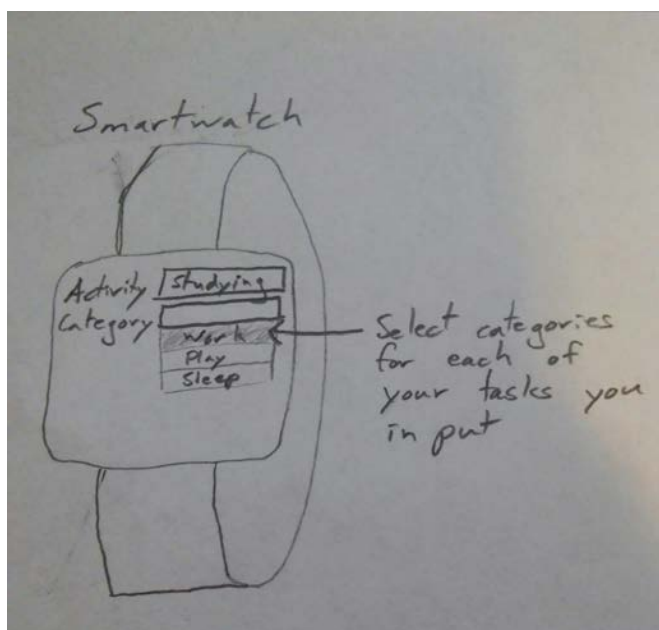 Smartwatch
Activity Studying
Category
Work
Play
Sleep
Select categories
for each of
your tasks you
in put